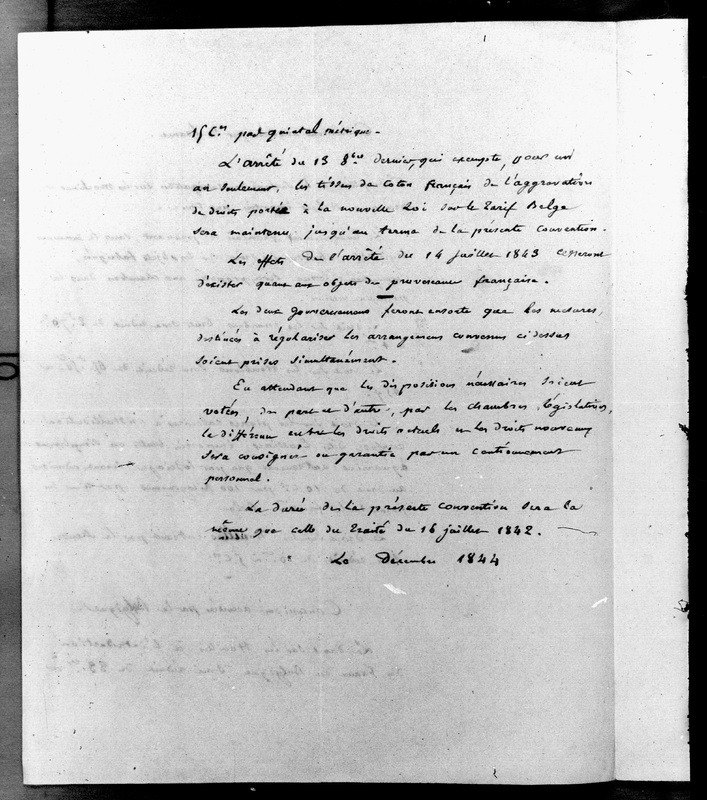 15 C.es par quintal métrique.
L'arrêté du 13 8bre dernier, qui excepte, pour un
an seulement, les tissus de coton français de l'aggravation
de droits portée à la nouvelle Loi sur le Tarif Belge
sera maintenu jusqu'au terme de la présente convention.
Les effets de l'arrêté du 14 juillet 1843 cesseront
d'exister quant aux objets de provenance française.
Les deux gouvernemens feront ensorte que les mesures,
destinées à régulariser les arrangemens convenus ci dessus
soient prises simultanément.
En attendant que les dispositions nécessaires soient
votées, de part et d'autre, par les chambres législatives,
la différence entre les droits actuels et les droits nouveaux
sera consignée ou garantie par un cautionnement
personnel.
La durée de la présente convention sera la
même que celle du Traité du 16 juillet 1842.
Décembre 1844